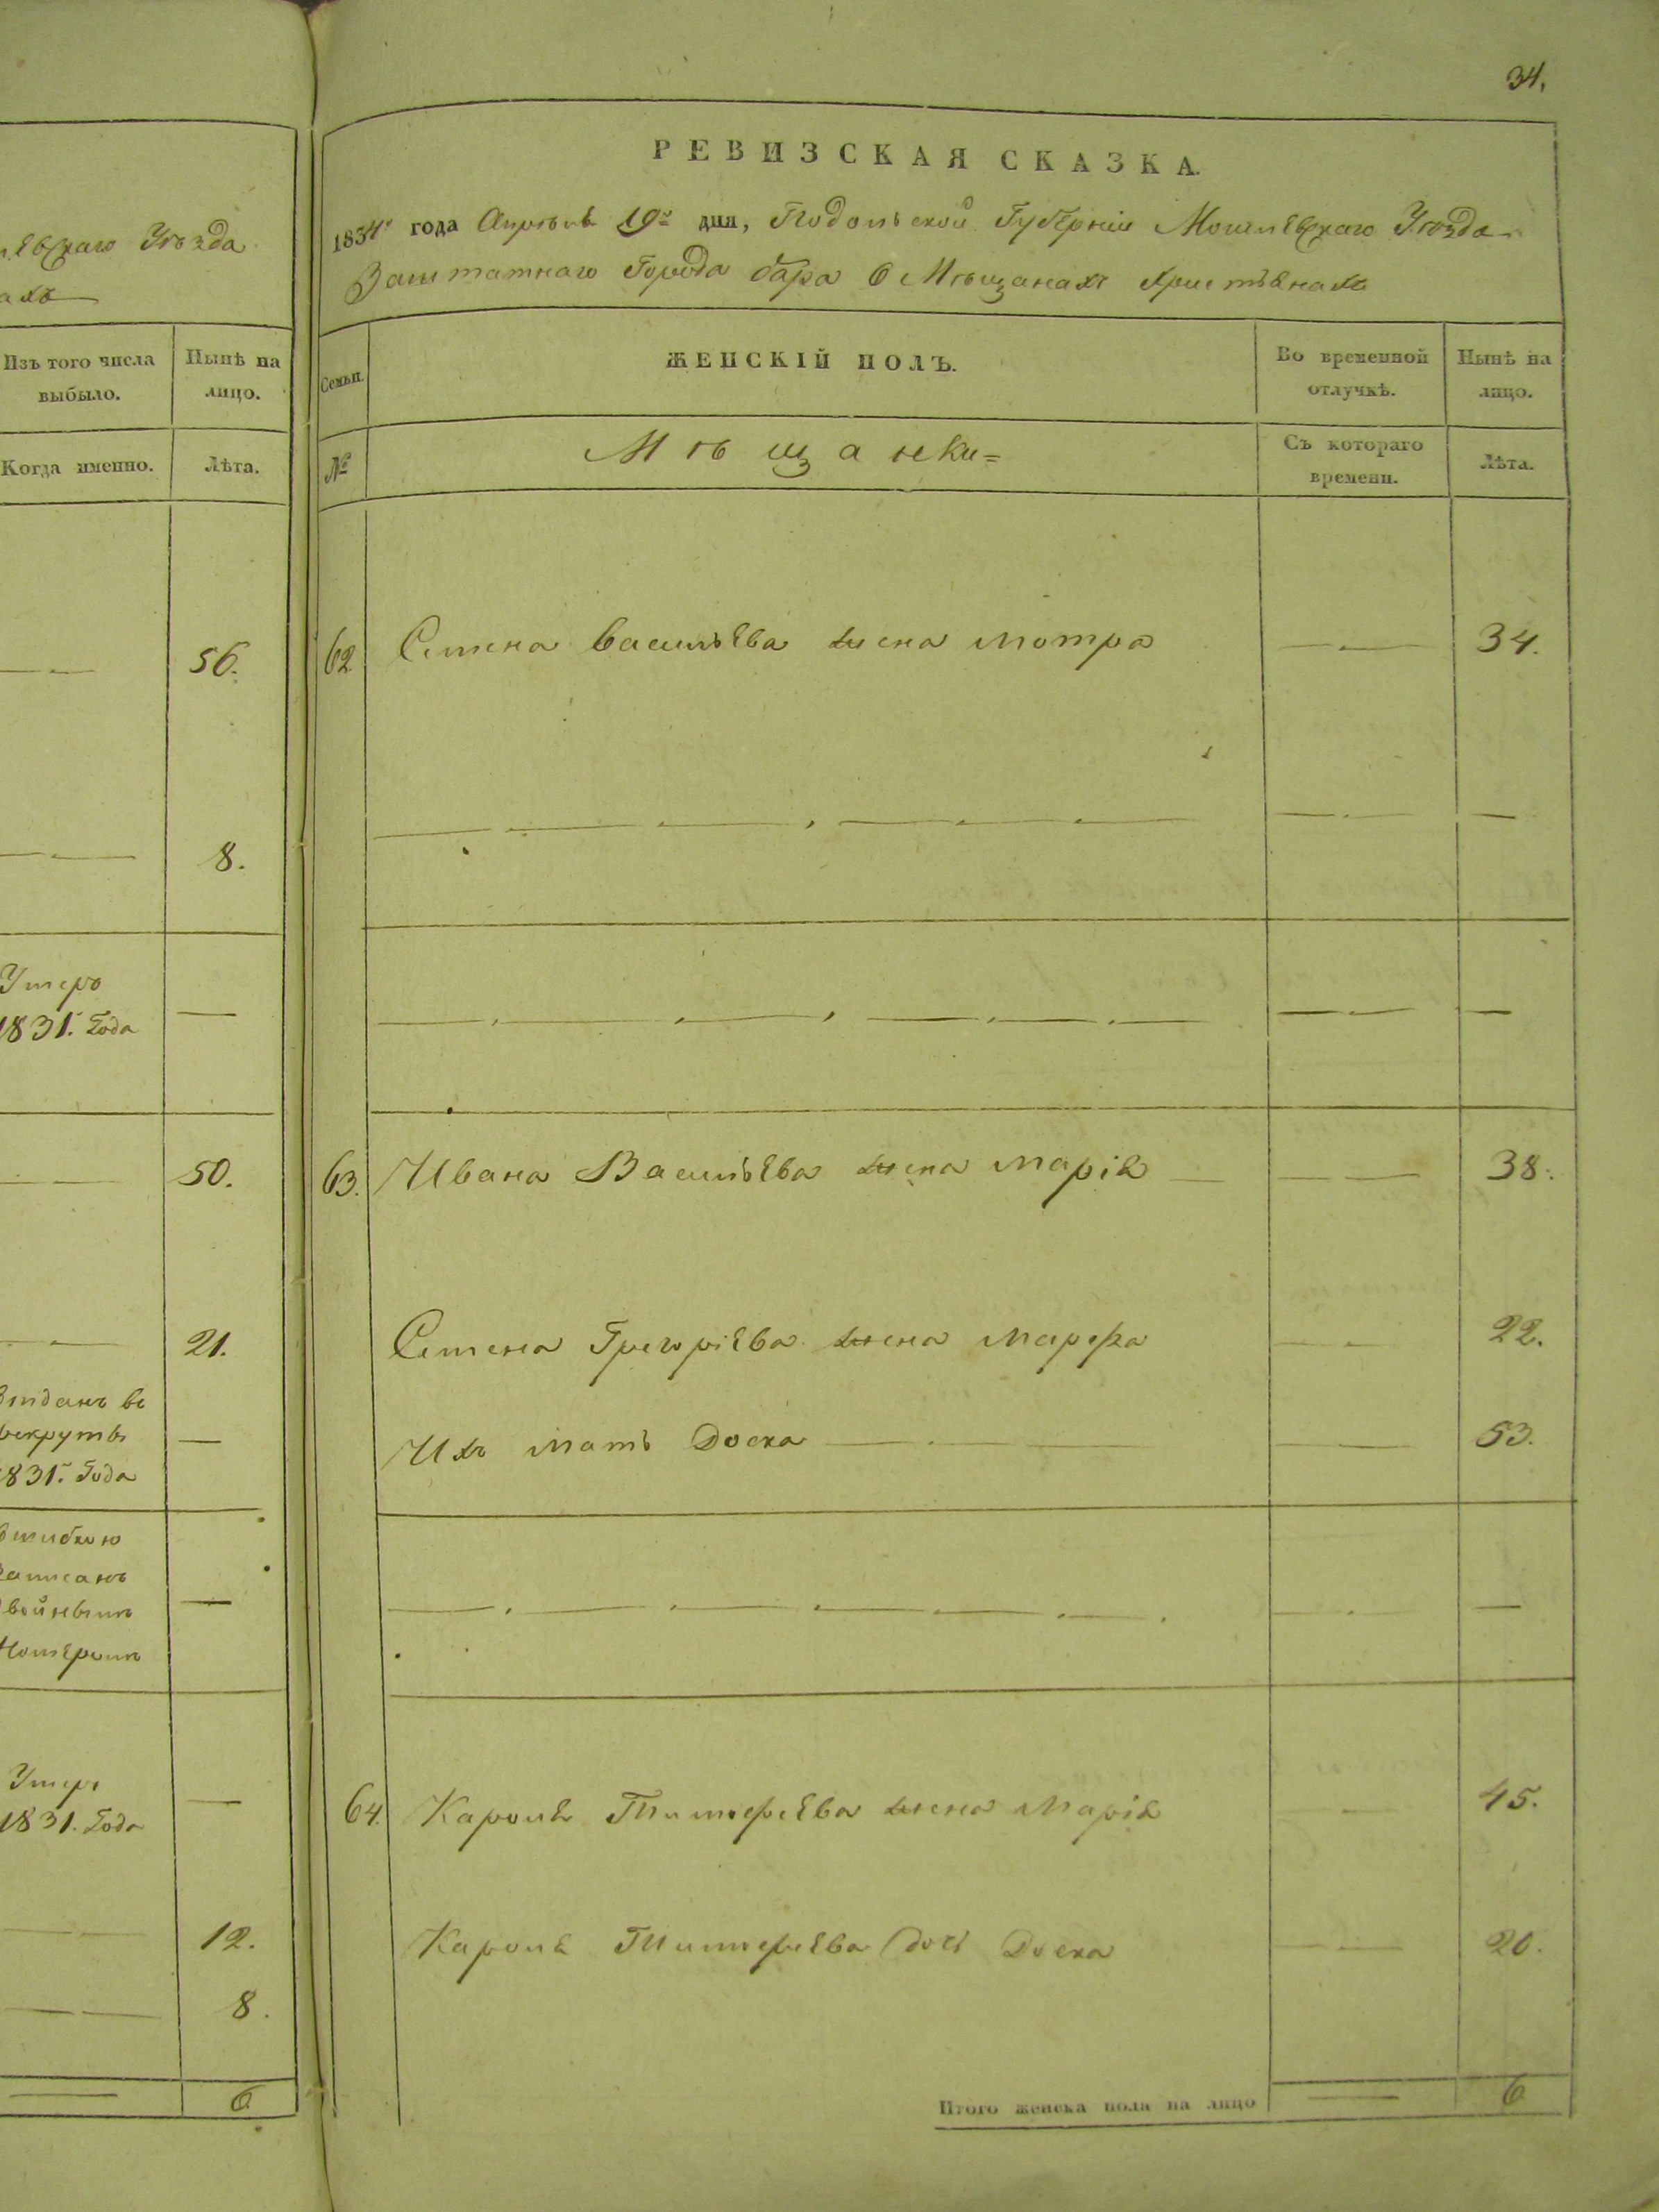 34.
РЕВИЗСКАЯ СКАЗКА.
1834го года Апреля 19го дня, Подольской Губерніи Могилевскаго Уѣзда
Заштатнаго Города Бара О Мѣщанахъ Христіянахъ
левскаго Уѣзда
ахъ
Изъ того числа выбыло.
Нынѣ на лицо.
Когда именно.
Лѣта.
56.
8.
Умеръ
1831. Года
—
50.
21.
Отданъ въ
рекруты
1831. Года
—
Ошибкою
Записанъ
двойнымъ
Номеромъ
—
Умеръ
1831. Года
—
12.
8.
6
Семьи.
ЖЕНСКІЙ ПОЛЪ.
Во временной отлучкѣ.
Нынѣ на лицо.
№
Мѣщанки
Съ котораго времени.
Лѣта.
62 Семена Васильева жена Мотра — — 34.
63. Ивана Васильева жена Марія — — 38.
Семена Григоріева жена Марфа — — 22.
Ихъ мать Доска — — 53.
64. Кароля Тимофеева жена Марія — 45.
Кароля Тимофеева дочь Доска — — 20.
Итого женска пола на лицо — 6